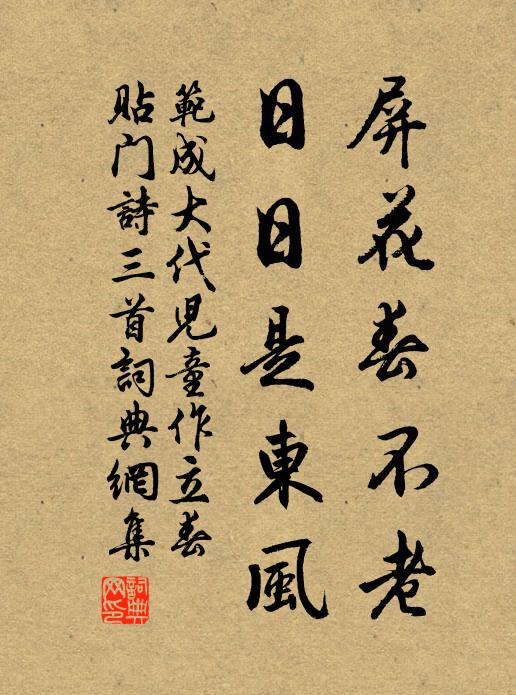 屏花春不老
日日是東風
範成大代児童作立春
貼门詩三首詞典網集
詞典网印